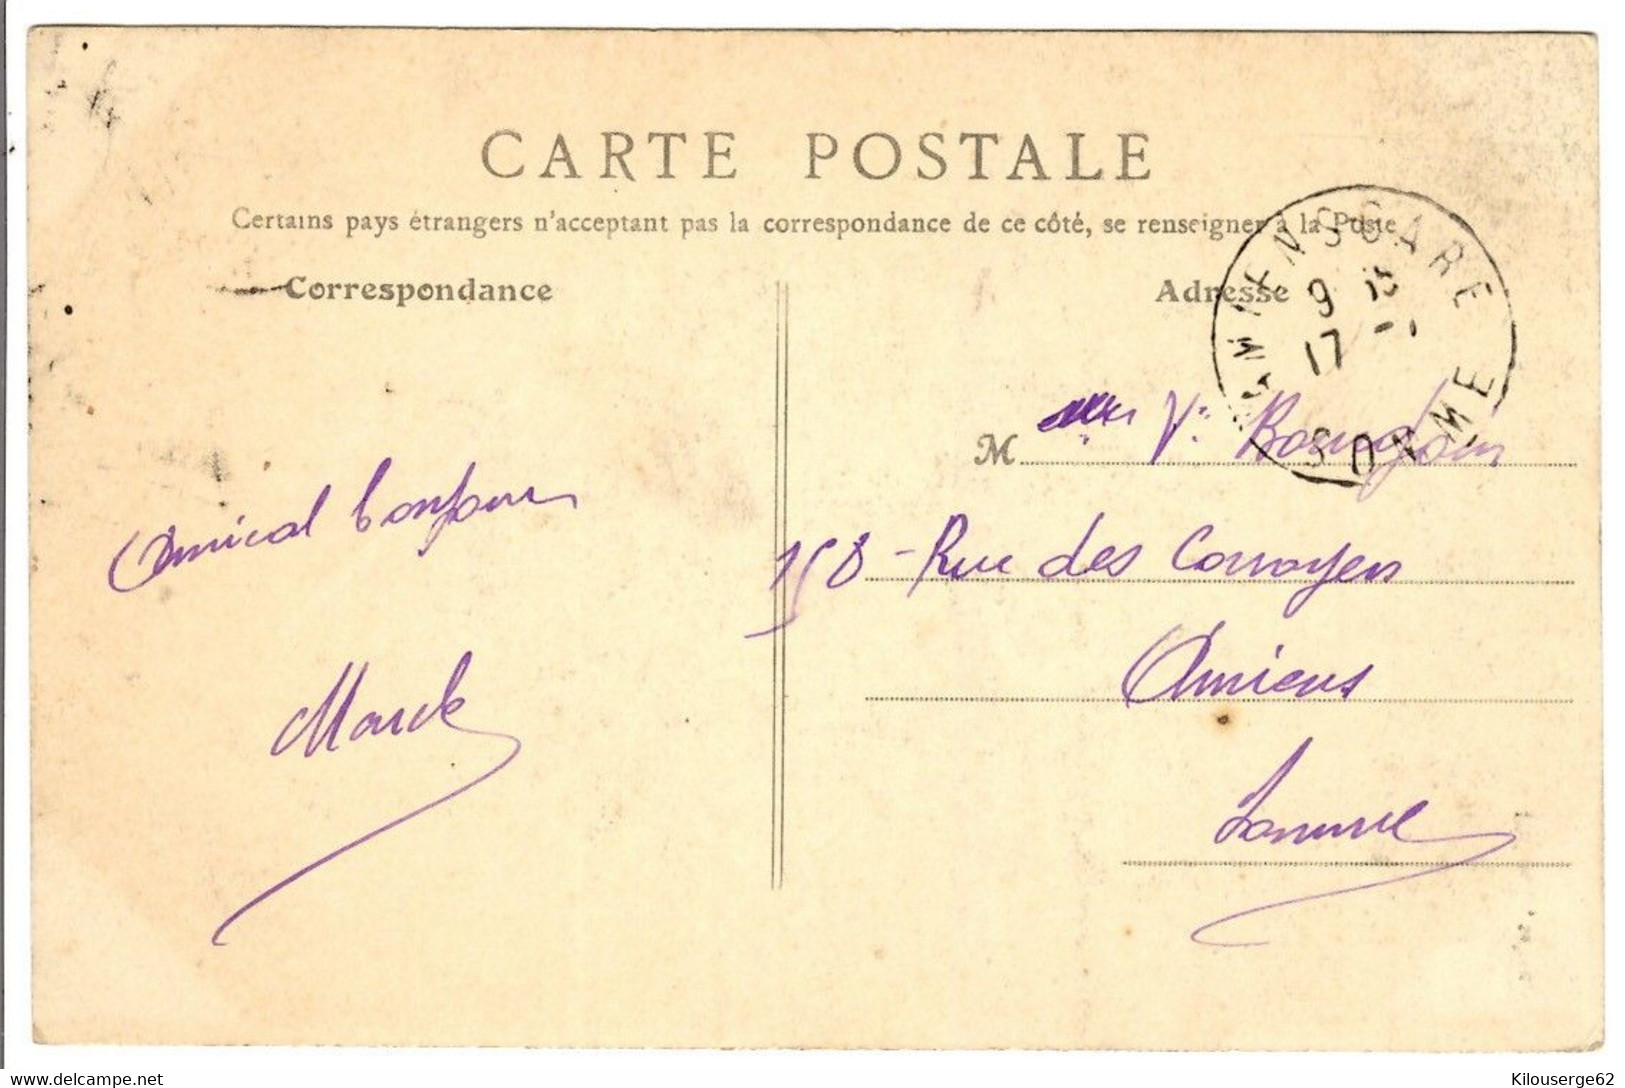 CARTE POSTALE
Certains pays étrangers n'acceptant pas la correspondance de ce côté, se renseigner à la Poste
Correspondance
Adresse
AMIENS GARE
9 15
17
SOMME
M V. Bourgoin
158 - Rue des Corroyers
Amiens
Somme
Amical bonjour
Marck
www.delcampe.net
Kilouserge62